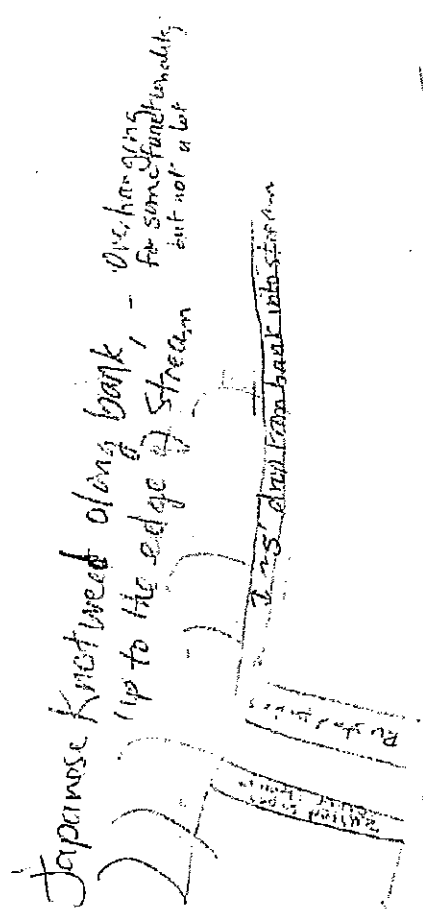 Japanese Knotweed along bank,
up to the edge of stream
- Overhanging
for some functionality
but not a lot
I ~5' drop from bank into stream
Rusted pipes